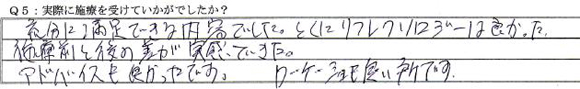 Q5：実際に施療を受けていかがでしたか？
充分に満足できる内容でした。とくにリフレクソロジーは良かった。
施療前と後の差が実感できた。
アドバイスも良かったです。　ロケーションも良い所です。